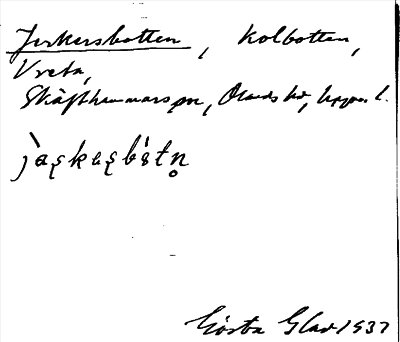 Jerkersbotten, Kolbotten,
Vreta,
Skäfthammars sn, Olands hd, Uppsala l.
Gösta Glad 1937